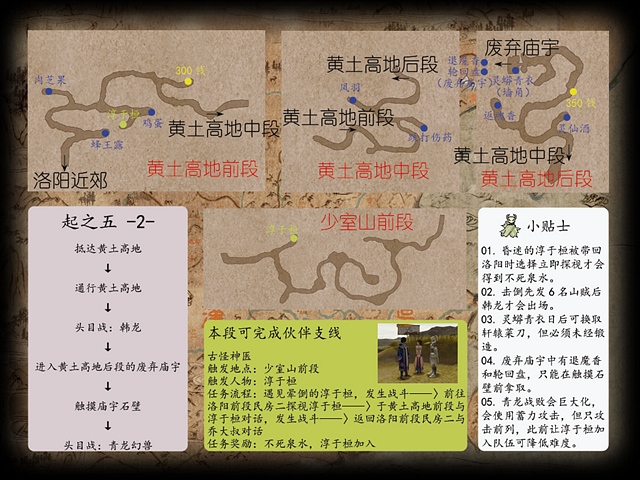 肉芝果
300 钱
淳于桓
鸡蛋
蜂王露
黄土高地中段
洛阳近郊
黄土高地前段
黄土高地后段
凤羽
黄土高地前段
跌打伤药
黄土高地中段
废弃庙宇
退魔香
轮回盘
(废弃庙宇)
灵蟒青衣
(墙角)
350 钱
退魔香
黄土高地中段
黄土高地后段
起之五 -2-
抵达黄土高地
↓
通行黄土高地
↓
头目战：韩龙
↓
进入黄土高地后段的废弃庙宇
↓
触摸庙宇石壁
↓
头目战：青龙幻兽
少室山前段
淳于桓
本段可完成伙伴支线
古怪神医
触发地点：少室山前段
触发人物：淳于桓
任务流程：遇见晕倒的淳于桓，发生战斗——〉前往
洛阳前段民房二探视淳于桓——〉于黄土高地前段与
淳于桓对话，发生战斗——〉返回洛阳前段民房二与
乔大叔对话
任务奖励：不死泉水，淳于桓加入
小贴士
01. 昏迷的淳于桓被带回
洛阳时选择立即探视才会
得到不死泉水。
02. 击倒先发 6 名山贼后
韩龙才会出场。
03. 灵蟒青衣日后可换取
轩辕菜刀，但必须未经锻
造。
04. 废弃庙宇中有退魔香
和轮回盘，只能在触摸石
壁前拿取。
05. 青龙战败会巨大化，
会使用蓄力攻击，但只攻
击前列，此前让淳于桓加
入队伍可降低难度。